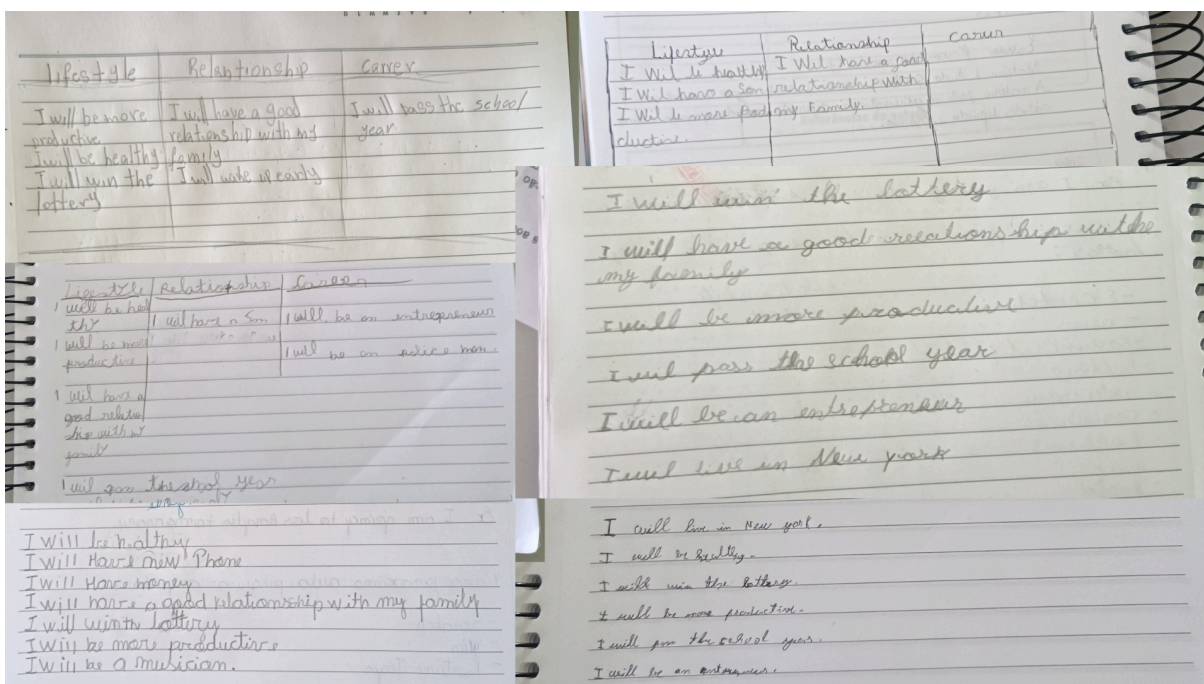 Lifestyle Relantionship Career
I will be more I will have a good I will pass the school
productive relationship with my year.
I will be healthy family
I will win the I will wake up early
lottery
Lifestyle Relationship
I Wil be healthy I Wil have a good
I Wil have a Son relationship with
I Wil be more Prod my Family.
ductive.
Lifestyle Relationship Career
I will be heal
thy I will have a Son I will be an entrepreneur
I will be more
productive I will be an police man.
I will have a
good relation
ship with my
family
I will the school year
I will win the lottery
I will have a good relationship withe
my family
I will be more productive
I will pass the school year
I will be an entrepreneur
I will live in New york
I will be healthy
I will Have new Phone
I will Have money
I will have a good relationship with my family
I will winth lottery
I will be more productive
I will be a musician.
I will live in New york.
I will be healthy.
I will win the lottery.
I will be more productive.
I will the school year.
I will be an